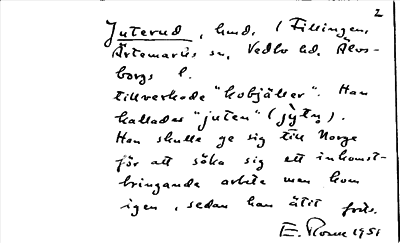 2
Juterud, hmd. (Fillingen,
Ärtemarks sn, Vedbo hd. Älvs-
borgs l.
tillverkade "kobjäller". Han
kallades "juten" (jỳtn̥).
Han skulle ge sig till Norge
för att söka sig ett inkomst-
bringande arbete men kom
igen, sedan han ätit
E. Rome 1951